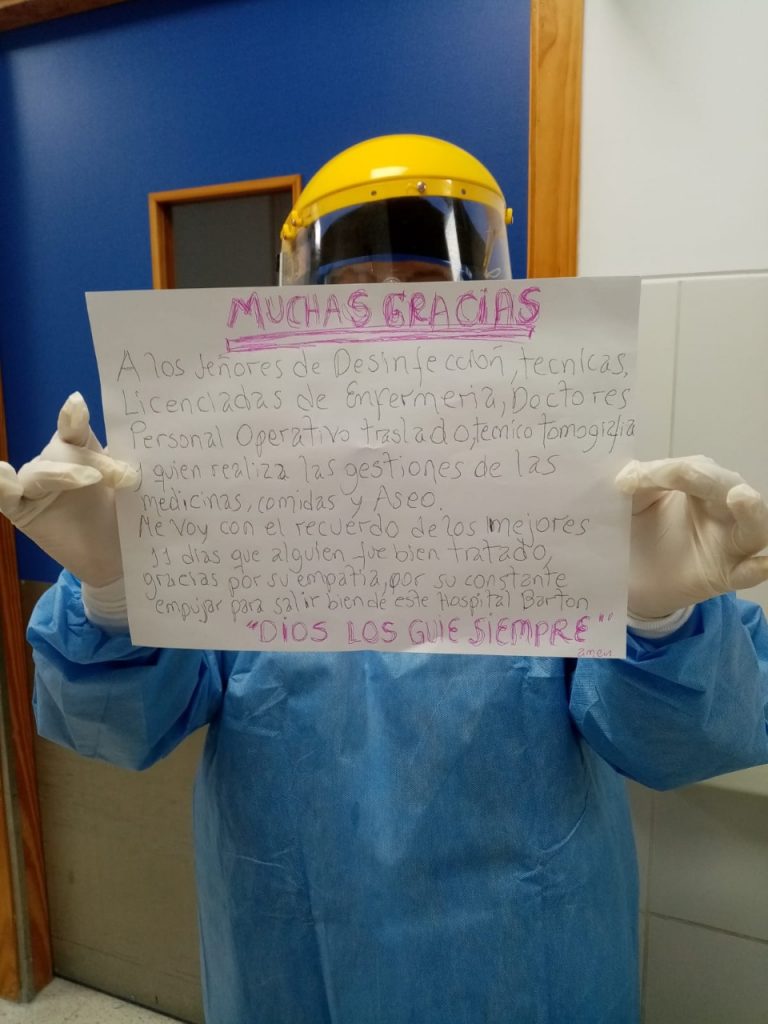 MUCHAS GRACIAS
A los señores de Desinfección, tecnicas,
Licenciadas de Enfermeria, Doctores
Personal Operativo traslado, tecnico tomografia
y quien realiza las gestiones de las
medicinas, comidas y Aseo.
Me voy con el recuerdo de los mejores
11 dias que alguien fue bien tratado,
gracias por su empatia, por su constante
empujar para salir bien de este Hospital Barton
"DIOS LOS GUIE SIEMPRE"
amen